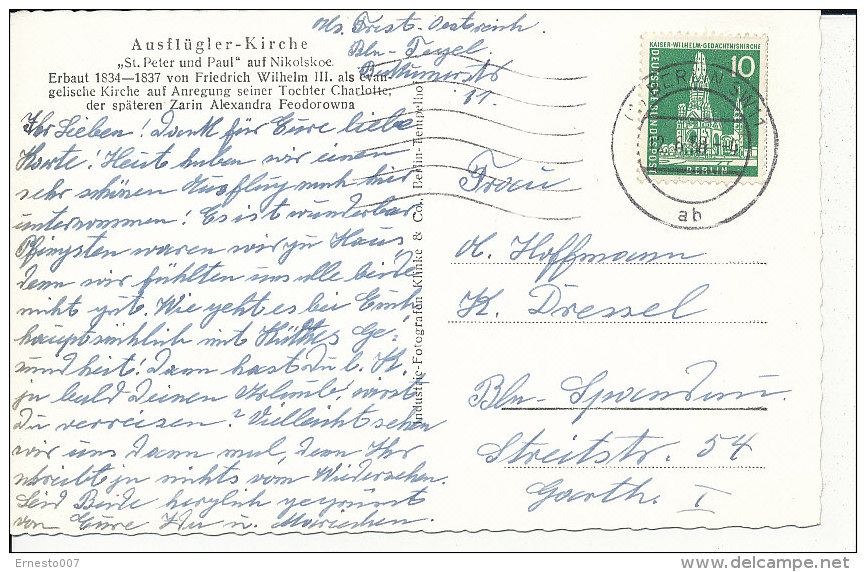 Ausflügler-Kirche
„St. Peter und Paul" auf Nikolskoe.
Erbaut 1834—1837 von Friedrich Wilhelm III. als evan-
gelische Kirche auf Anregung seiner Tochter Charlotte,
der späteren Zarin Alexandra Feodorowna
Ihr Lieben! Dank für Eure liebe
Karte! Heute haben wir einen
sehr schönen Ausflug nach hier
unternommen! Es ist wunderbar
Pfingsten waren wir zu Haus,
denn wir fühlten uns alle beide
nicht gut. Wie geht es bei Euch,
hauptsächlich mit Käthes Ge-
sundheit! Dann hast Du l. K.
ja bald Deinen Urlaub, wirst
Du verreisen? Vielleicht sehen
wir uns dann mal, denn Ihr
schreibt ja nichts vom Wiedersehen.
Seid Beide herzlich gegrüsst
von Eure u. Mariechen.
Industrie-Fotografen Klinke & Co., Berlin-Tempelhof
Abs. Trist-Oestreich
Bln-Tegel
11.
KAISER-WILHELM-GEDÄCHTNISKIRCHE
10
DEUTSCHE BUNDESPOST
BERLIN
BERLIN
ab
Frau
A. Hoffmann
K. Dressel
Bln-Spandau.
Streitstr. 54
Garth. I
Ernesto007
delcampe.net